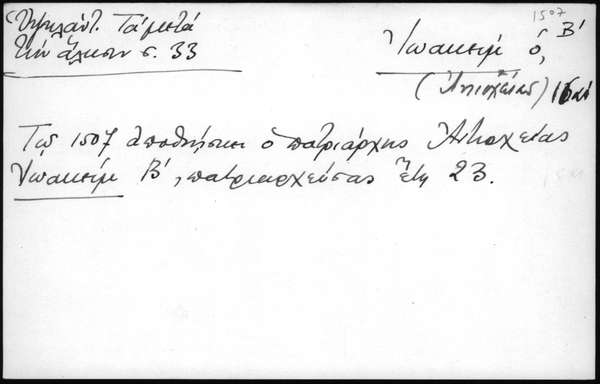 Ὑψηλάντ. Τὰ μετὰ
τὴν ἅλωσιν σ. 33
1507
Ἰωακεὶμ ὁ, Β΄
(Ἀντιοχείας)
Τῷ 1507 ἀποθνήσκει ὁ πατριάρχης Ἀντιοχείας
Ἰωακεὶμ Β΄, πατριαρχεύσας ἔτη 23.